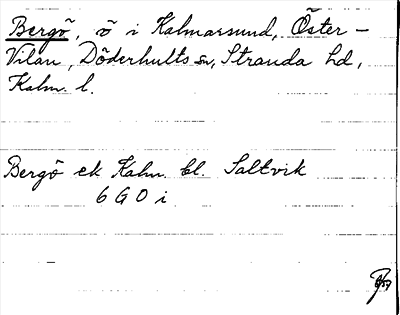 Bergö, ö i Kalmarsund, Öster-
Vilan, Döderhults sn, Stranda hd,
Kalm. l.
Bergö ek Kalm. bl. Saltvik
6 G 0 i